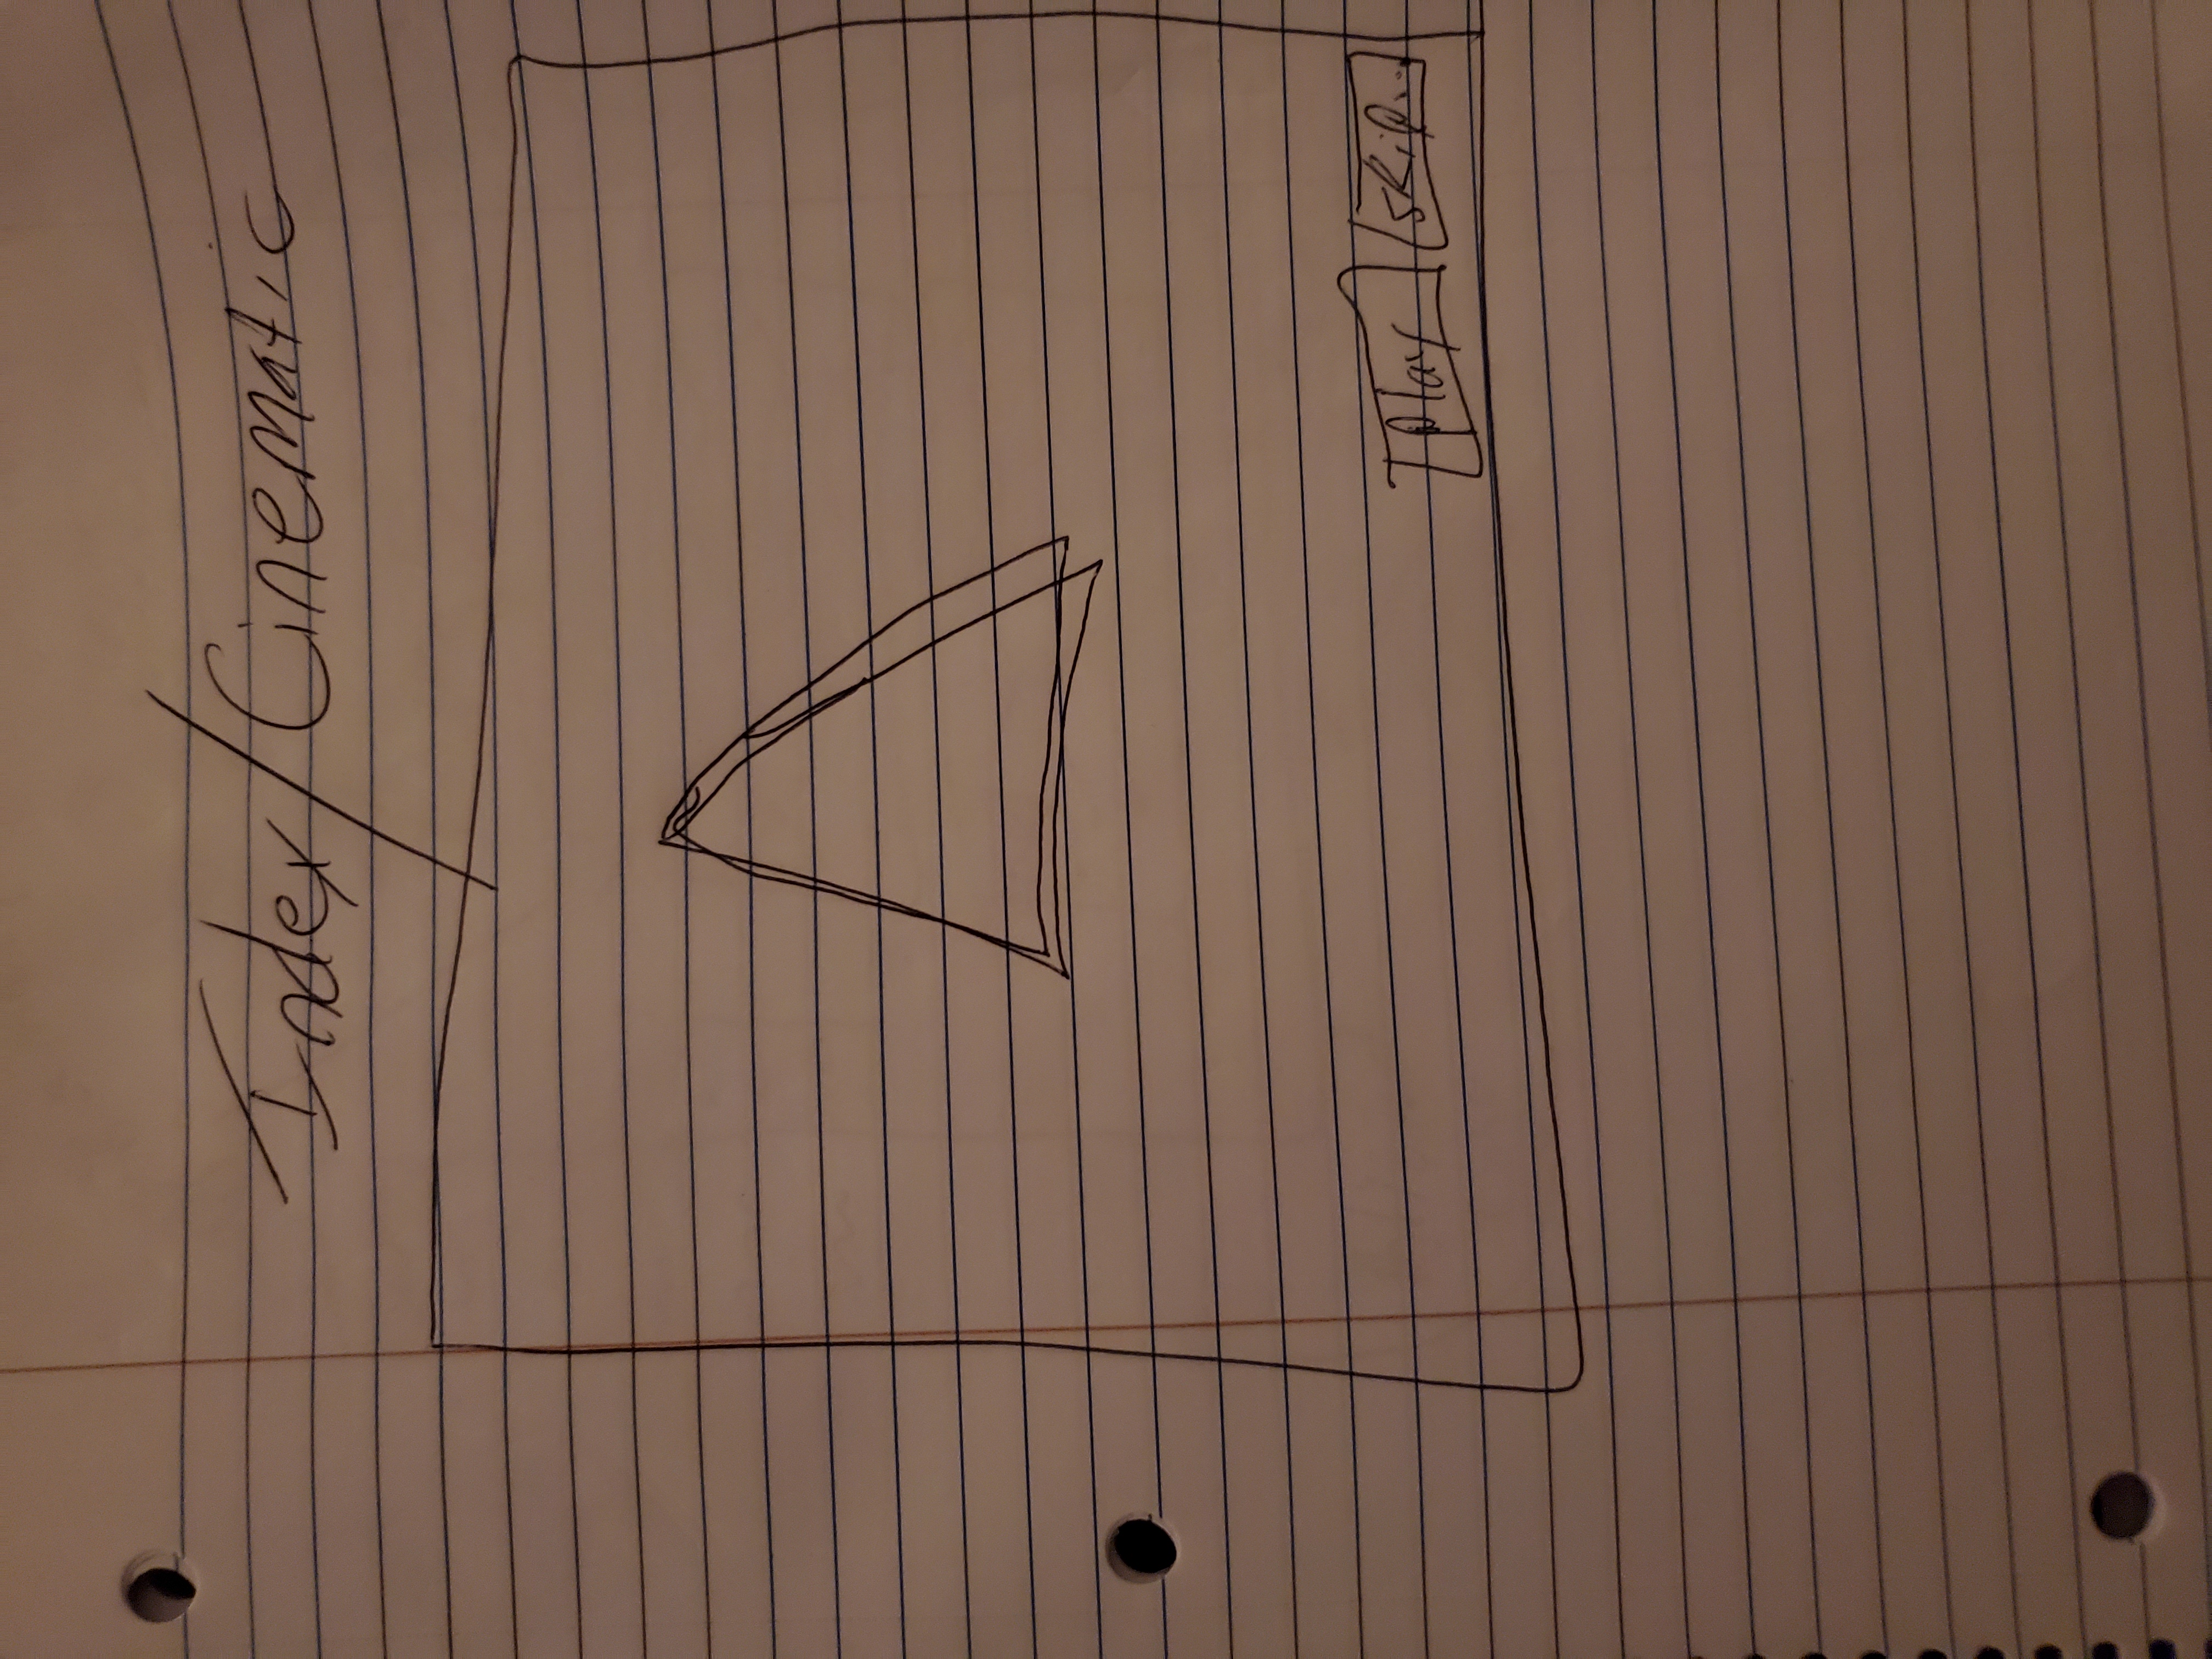 Index/Cinematic
Play
Skip...